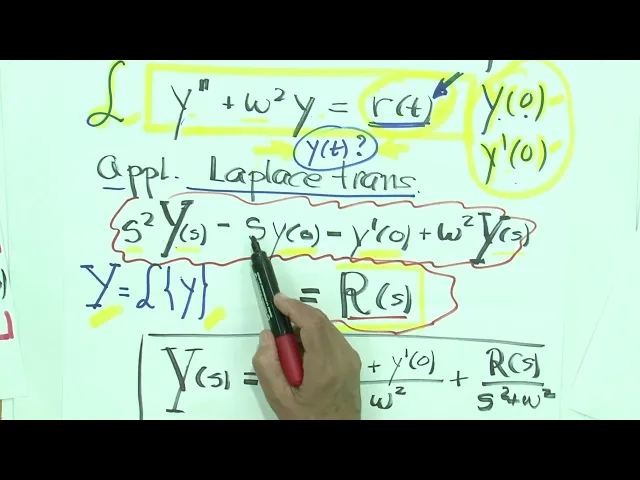 ℒ y" + ω² y = r(t) y(0)
y(t)? y'(0)
appl. Laplace trans.
s² Y(s) - s y(0) - y'(0) + ω² Y(s)
Y = ℒ{y} = R(s)
Y(s) = + y'(0) / ω² + R(s) / s²+ω²